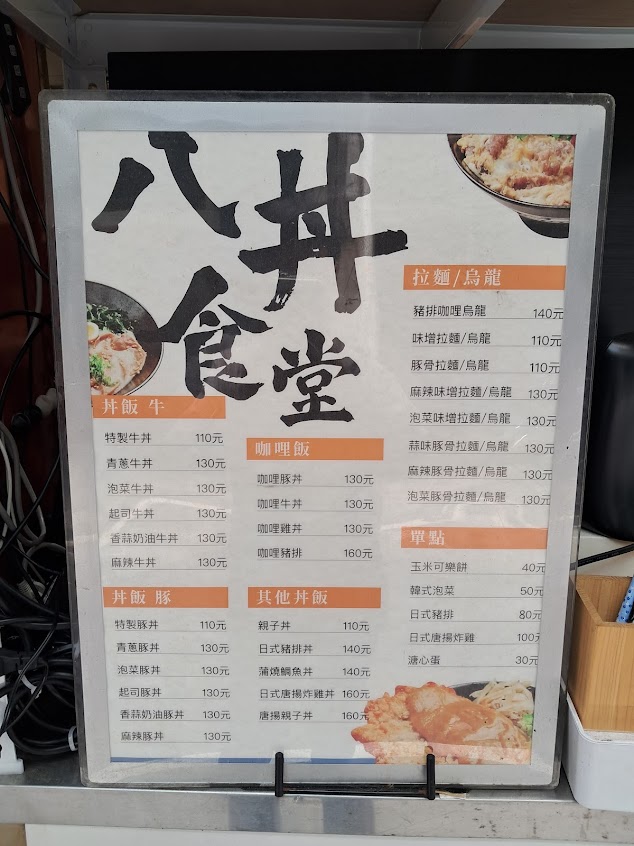 八丼食堂
丼飯 牛
特製牛丼 110元
青蔥牛丼 130元
泡菜牛丼 130元
起司牛丼 130元
香蒜奶油牛丼 130元
麻辣牛丼 130元
丼飯 豚
特製豚丼 110元
青蔥豚丼 130元
泡菜豚丼 130元
起司豚丼 130元
香蒜奶油豚丼 130元
麻辣豚丼 130元
咖哩飯
咖哩豚丼 130元
咖哩牛丼 130元
咖哩雞丼 130元
咖哩豬排 160元
其他丼飯
親子丼 110元
日式豬排丼 140元
蒲燒鯛魚丼 140元
日式唐揚炸雞丼 160元
唐揚親子丼 160元
拉麵/烏龍
豬排咖哩烏龍 140元
味增拉麵/烏龍 110元
豚骨拉麵/烏龍 110元
麻辣味增拉麵/烏龍 130元
泡菜味增拉麵/烏龍 130元
蒜味豚骨拉麵/烏龍 130元
麻辣豚骨拉麵/烏龍 130元
泡菜豚骨拉麵/烏龍 130元
單點
玉米可樂餅 40元
韓式泡菜 50元
日式豬排 80元
日式唐揚炸雞 100元
溏心蛋 30元